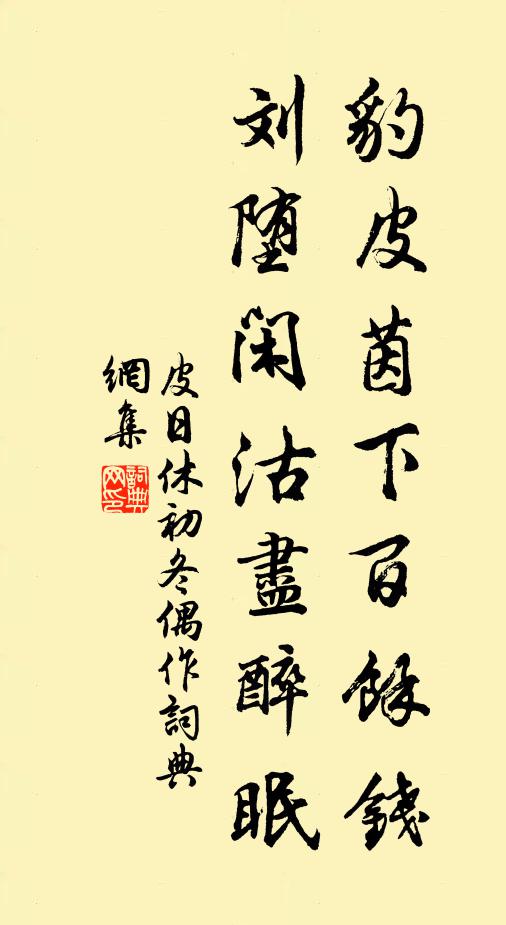 豹皮茵下百餘錢
刘堕閑沽盡醉眠
皮日休初冬偶作詞典
網集
詞典網印